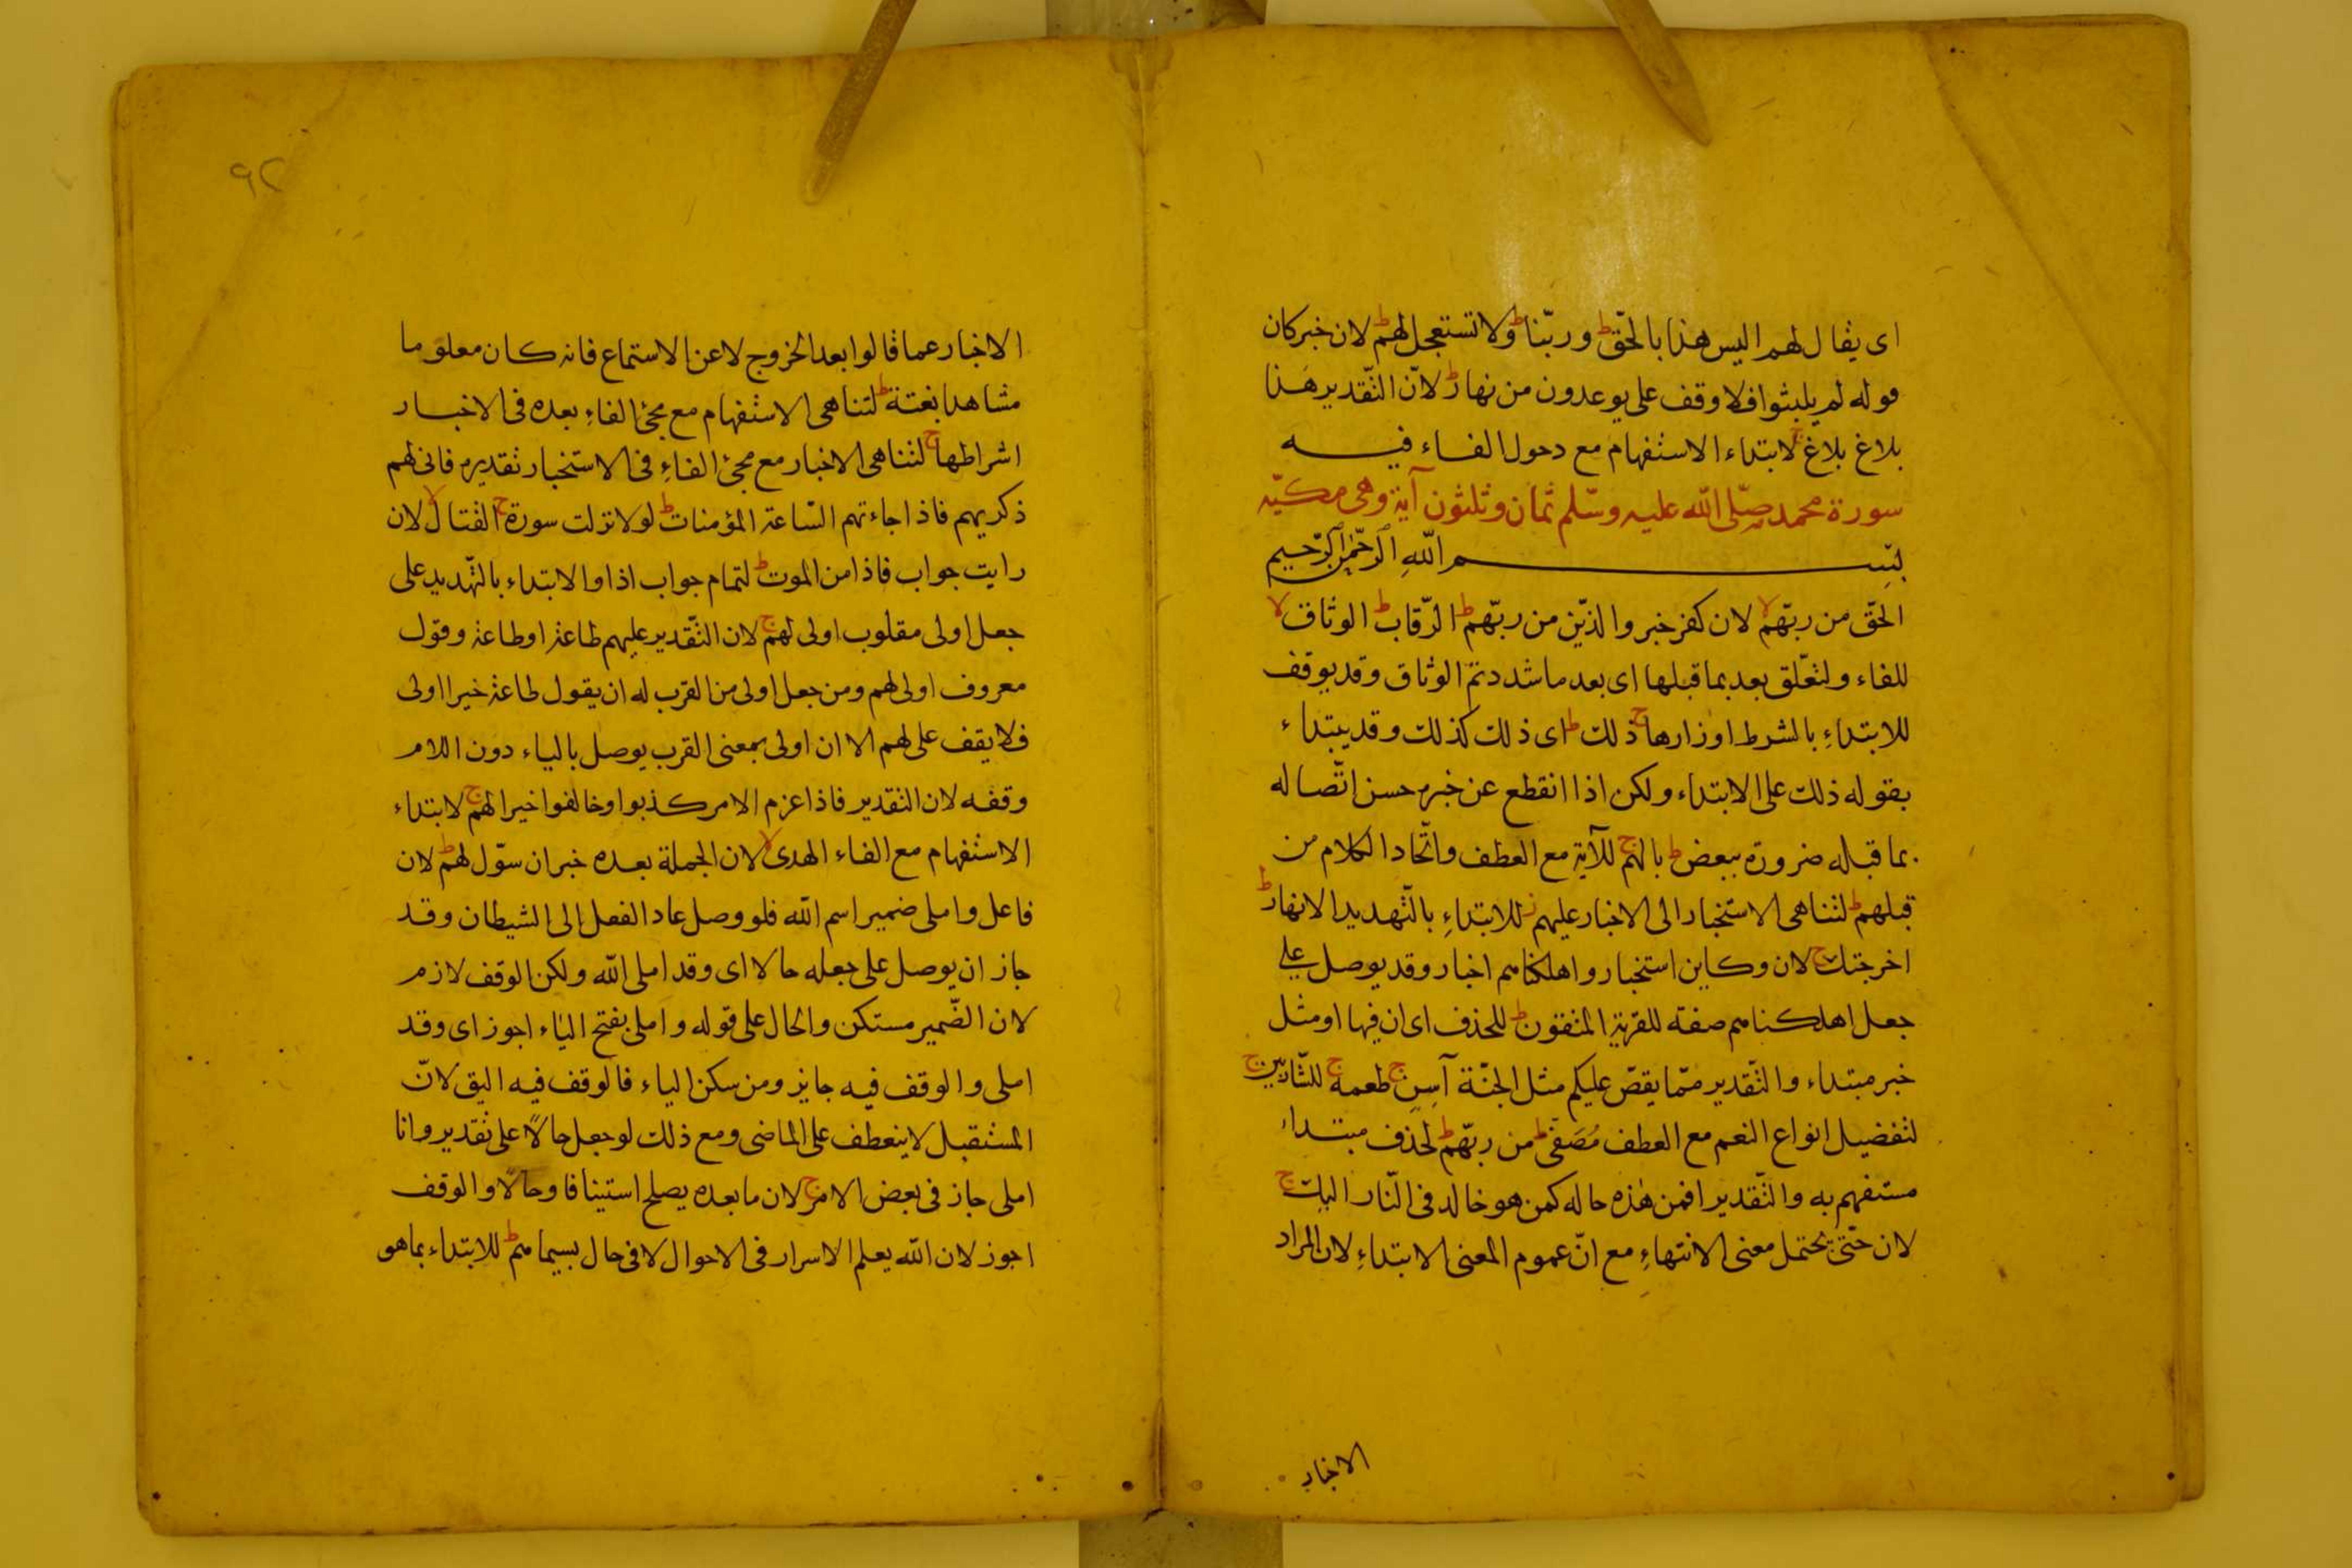 اى يقال لهم اليس هذا بالحقّ ط وربّنا ط ولا تستعجل لهم ط لان خبر كان
قوله لم يلبثوا فلا وقف على يوعدون من نهار ط لانّ التّقدير هَذا
بلاغ بلاغ ج لابتداء الاستفهام مع دحول الفاء فيه
سورة محمد صلّى اللّه عليه وسّلم ثمان وثلثون آية وهى مكيّه
بسم اللّه الرّحمن الرّحيم
الحّق من ربّهم لا لان كفر خبر والذيّن من ربّهم ط الرّقاب ط الوثاق لا
للفاء ولتعلّق بعد بما قبلها اى بعد ما شددتم الوثاق وقد يوقف
للابتداءِ بالشرط اوزارها ج ذلك ط اى ذلك كذلك وقد يبتداء
بقوله ذلك على الابتداء ولكن اذا انقطع عن خبره حسن اتّصاله
بما قبله ضرورة ببعض ط بالهم ج للآية مع العطف واتّحاد الكلام من
قبلهم ط لتناهى الاستخبار الى الاخبار عليهم ز للابتداءِ بالتّهديد الانهار ط
اخرجتك ج لان وكاين استخبار واهلكناهم اخبار وقد يوصل على
جعل اهلكناهم صفة للقرية المتقون ط للحذف اى ان فيها او مثل
خبر مبتداء والتّقدير ممّا يقصّ عليكم مثل الجنّة آسِنٍ ج طعمه ج للشّاربين ج
لتفضيل انواع النعم مع العطف مُصَفًّى ط من ربّهم ط لحذف مبتداء
مستفهم به والتّقدير افمن هٰذه حاله كمن هو خالد فى النّار اليك ج
لان حتّى يحتمل معنى الانتهاءِ مع انّ عموم المعنى الابتداءِ لان المراد
الاخبار
٩٢
الاخبار عما قالوا بعد الخروج لا عن الاستماع فانه كان معلوما
مشاهدا بغتة ط لتناهى الاستفهام مع مجئ الفاءِ بعده فى الاخبار
اشراطها ج لتناهى الاخبار مع مجئ الفاءِ فى الاستخبار تقديره فانى لهم
ذكريهم فاذا جاءتهم السّاعة المؤمنات ط لولا نزلت سورة ج القتال لا لان
رايت جواب فاذا من الموت ط لتمام جواب اذا والابتداء بالتّهديد على
جعل اولى مقلوب اولى لهم ج لان التّقدير عليهم طاعة او طاعة وقول
معروف اولى لهم ومن جعل اولى من القرب له ان يقول طاعة خيرا اولى
فلا يقف على لهم الا ان اولى بمعنى القرب يوصل بالياء دون اللام
وقفه لان التقدير فاذا عزم الامر كذبوا وخالفوا خيرا لهم ج لابتداء
الاستفهام مع الفاء الهدى لا لان الجملة بعده خبر ان سوّل لهم ط لان
فاعل واملى ضمير اسم اللّه فلو وصل عاد الفعل إلى الشيطان وقد
جاز ان يوصل على جعله حالا اى وقد املى اللّه ولكن الوقف لازم
لان الضّمير مستكن والحال على قوله واملى بفتح الياء اجوز اى وقد
املى والوقف فيه جايز ومن سكن الياء فالوقف فيه اليق لانّ
المستقبل لا ينعطف على الماضى ومع ذلك لو جعل حالاً على تقدير وانا
املى جاز فى بعض الامر ج لان ما بعده يصلح استينافا وحالاً والوقف
اجوز لان اللّه يعلم الاسرار فى الاحوال لا فى حال بسيماهم ط للابتداء بما هو